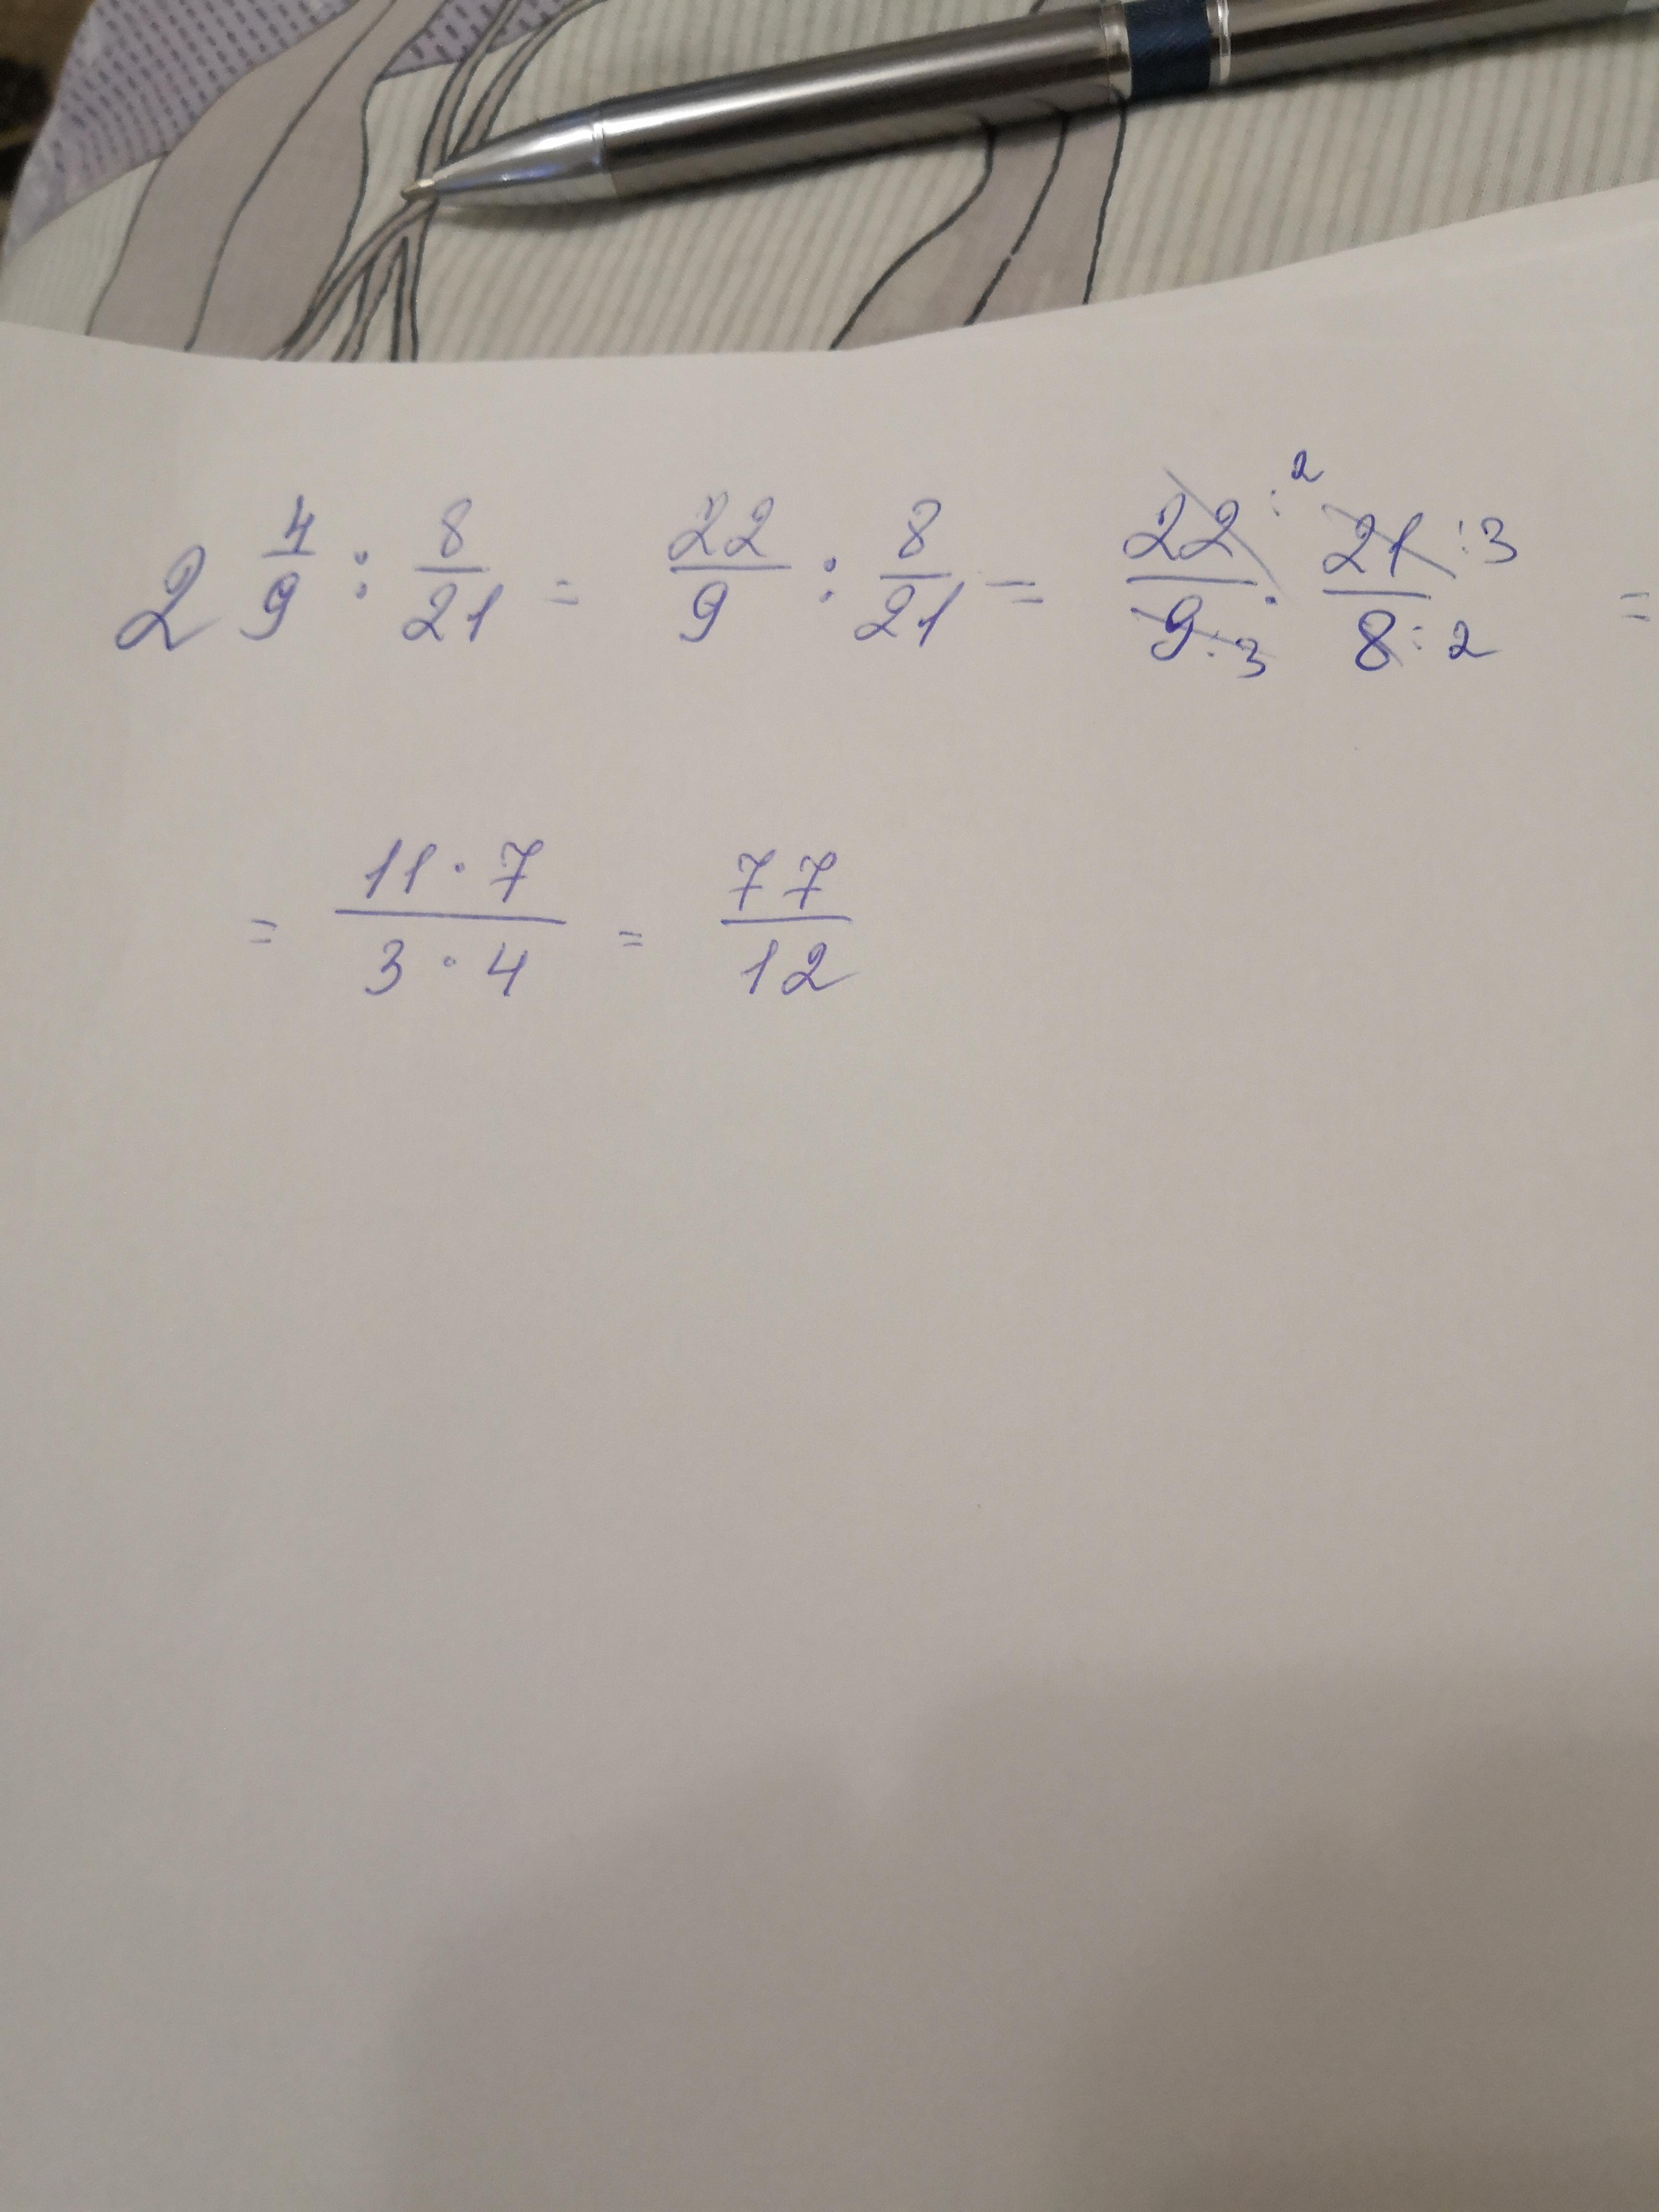 2 4/9 : 8/21 = 22/9 : 8/21 = 22:2/9:3 · 21:3/8:2 =
= 11·7/3·4 = 77/12